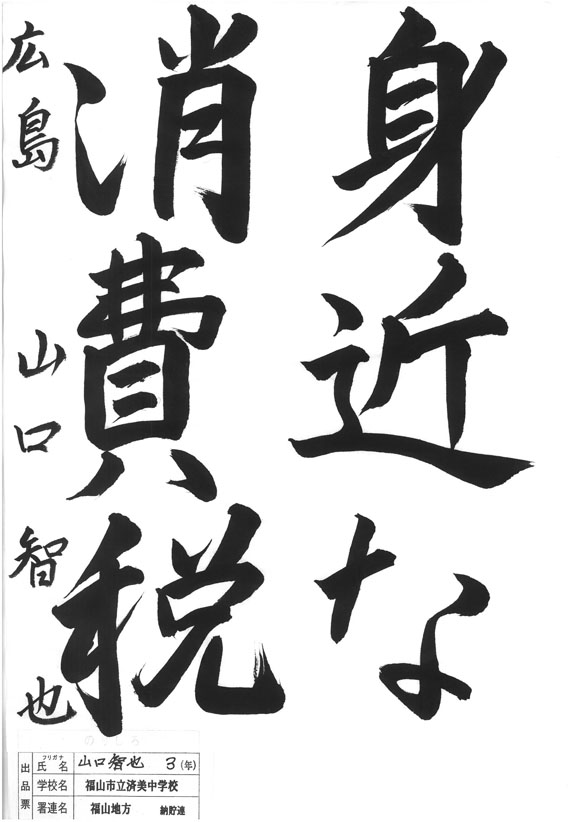 身近な
消費税
広島 山口 智也
のりしろ
出品票
フリガナ
氏名 山口智也 3(年)
学校名 福山市立済美中学校
署連名 福山地方 納貯連